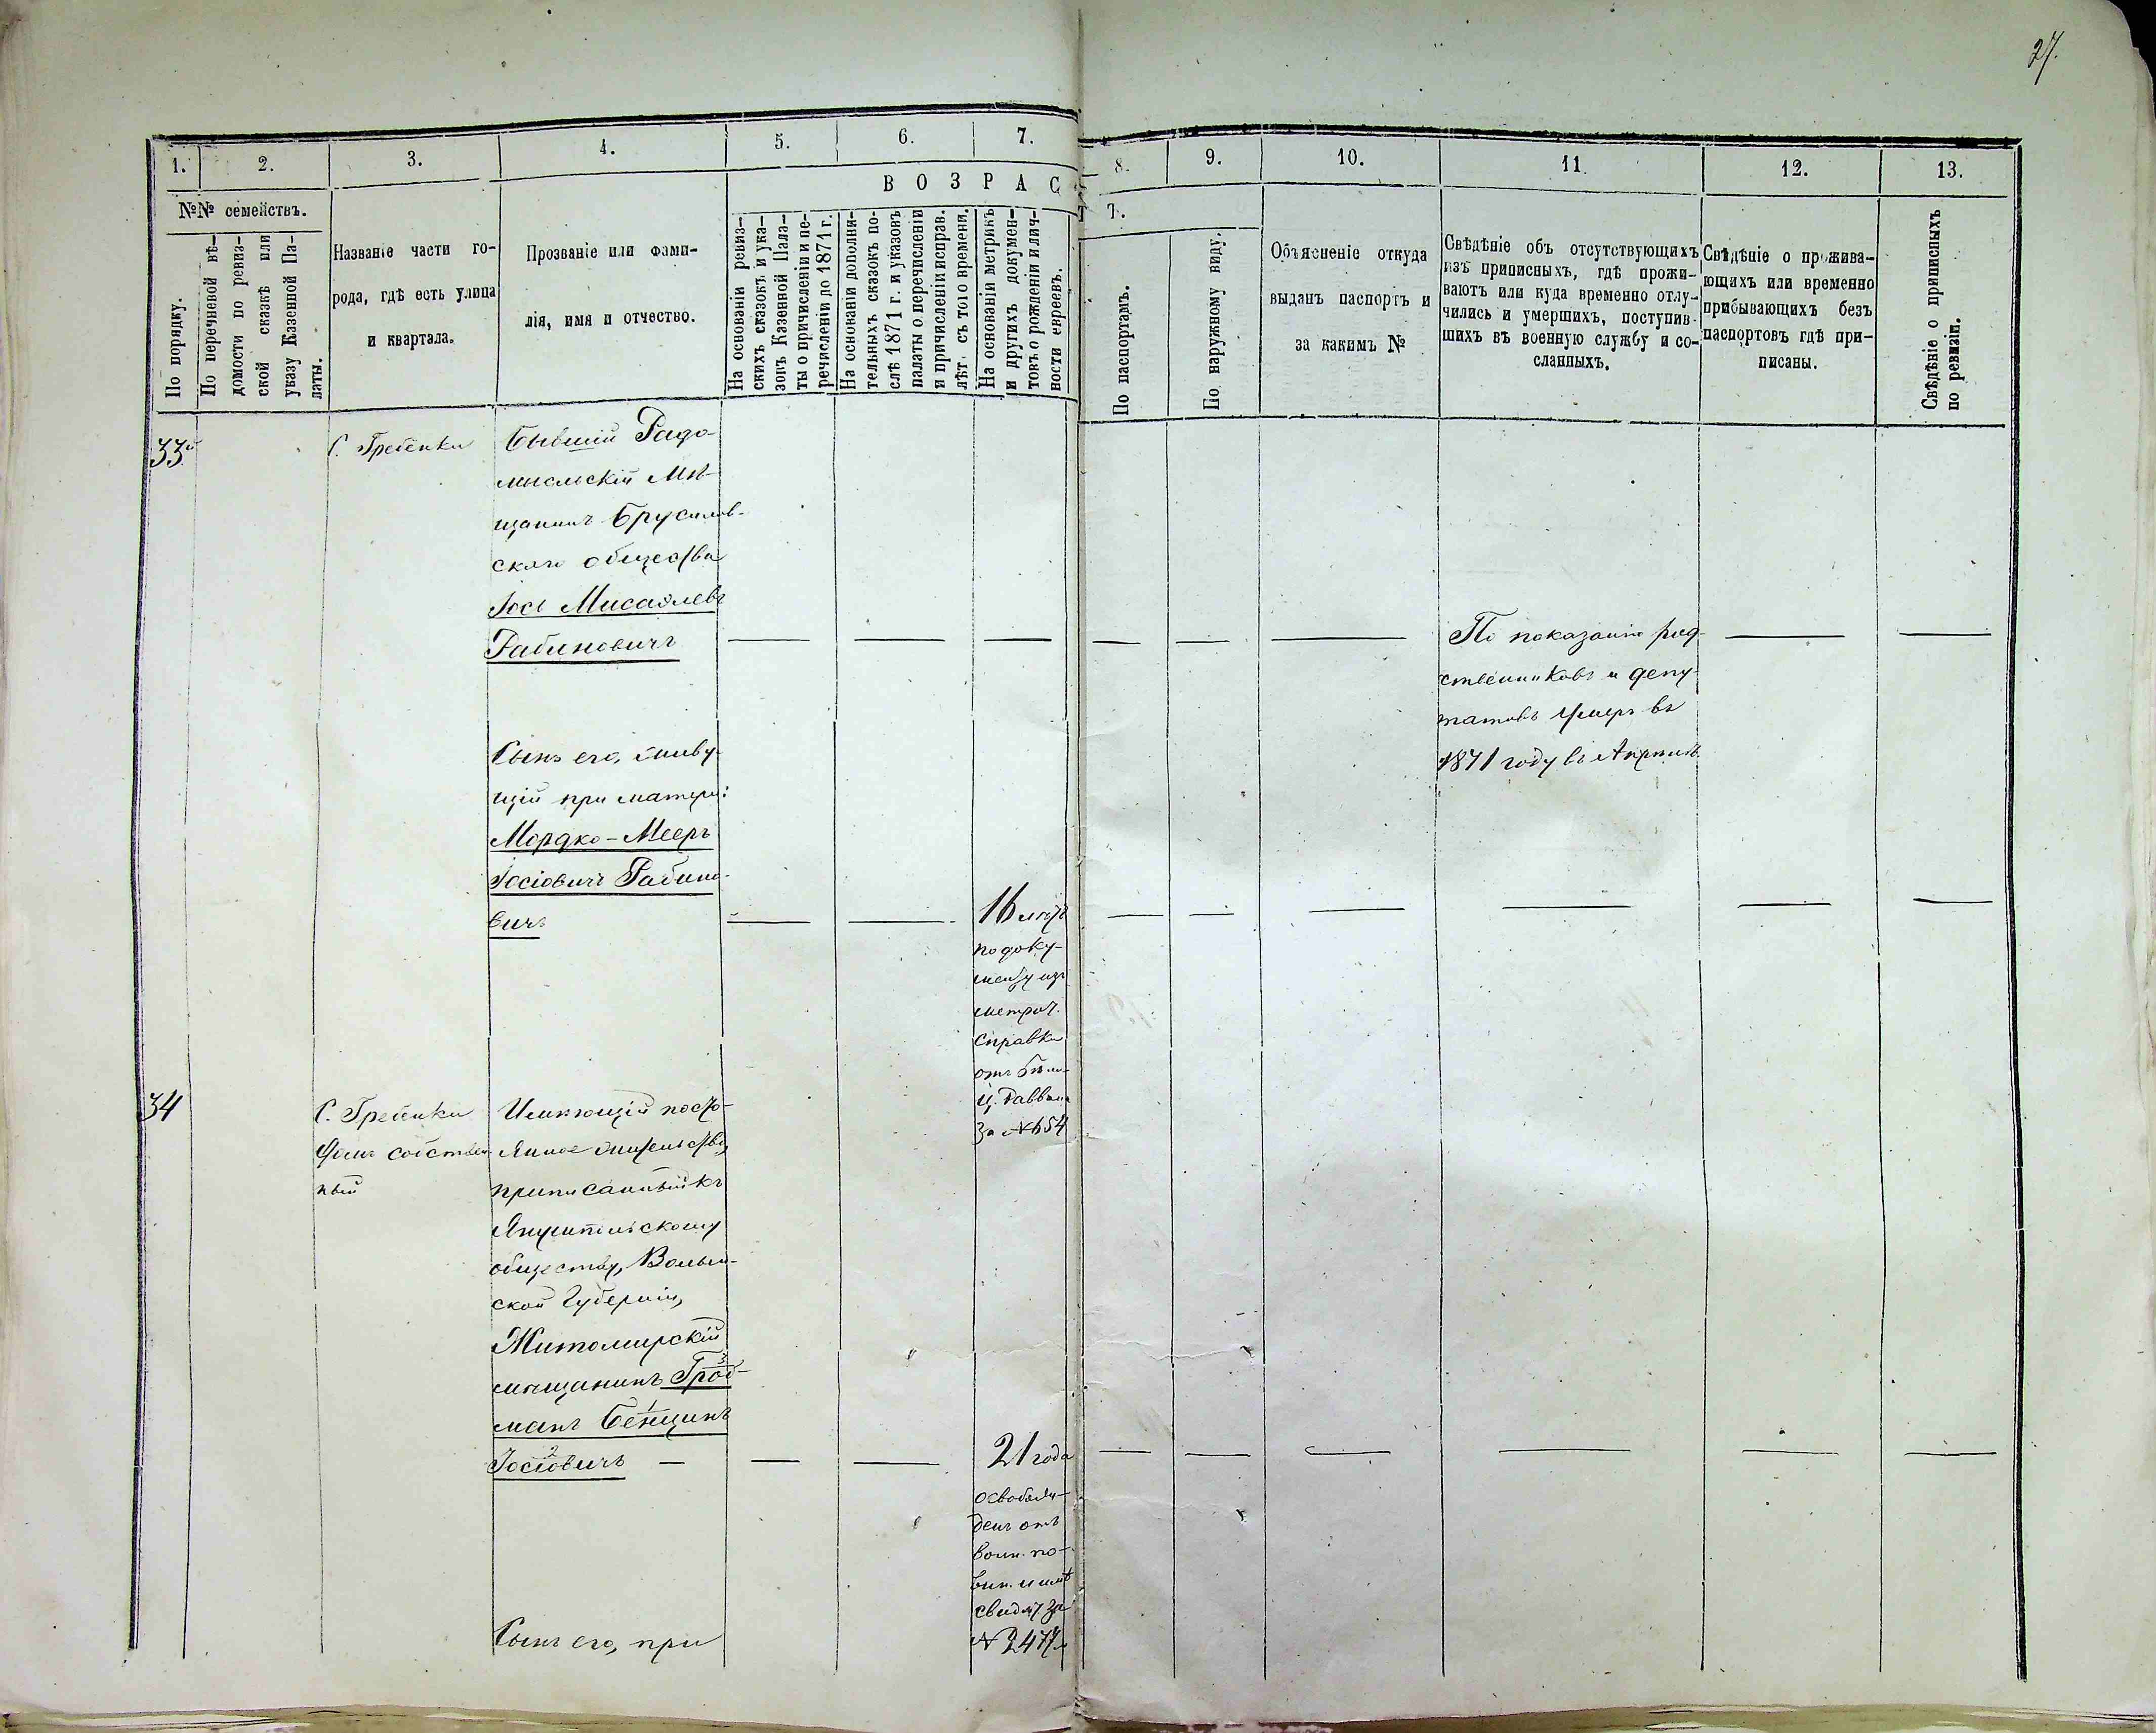 27.
1.
2.
3.
4.
5.
6.
7.
8.
9.
10.
11.
12.
13.
ВОЗРАСТ.
№№ семействъ.
По порядку.
По перечневой вѣ-
домости по ревиз-
ской сказкѣ или
указу Казенной Па-
латы.
Названіе части го-
рода, гдѣ есть улица
и квартала.
Прозваніе или фами-
лія, имя и отчество.
На основаніи ревиз-
скихъ сказокъ и ука-
зовъ Казенной Пала-
ты о причисленіи и пе-
речисленіи до 1871 г.
На основаніи дополни-
тельныхъ сказокъ по-
слѣ 1871 г. и указовъ
палаты о перечисленіи
и причисленіи исправ.
лѣт. съ того времени.
На основаніи метрикъ
и другихъ докумен-
товъ о рожденіи и лич-
ности евреевъ.
По паспортамъ.
По наружному виду.
Объясненіе откуда
выданъ паспортъ и
за какимъ №
Свѣдѣніе объ отсутствующихъ
изъ приписныхъ, гдѣ прожи-
ваютъ или куда временно отлу-
чились и умершихъ, поступив-
шихъ въ военную службу и со-
сланныхъ.
Свѣдѣніе о прожива-
ющихъ или временно
прибывающихъ безъ
паспортовъ гдѣ при-
писаны.
Свѣдѣніе о приписныхъ
по ревизіи.
33й
С. Гребенки
Бывшій Радо-
мысльскій Мѣ-
щанинъ Брусилов-
скаго общества
Іось Мисаилевъ
Рабиновичъ
По показанію род-
ственниковъ и депу-
татовъ умеръ въ
1871 году въ Апрѣлѣ
Сынъ его, живу-
щій при матери:
Мордко-Мееръ
Іосіовичъ Рабино-
вичъ
16 лѣтъ
по доку-
менту изъ
метрич.
справки
отъ
Ц. Раввина
за № 654
34
С. Гребенки
Домъ собствен-
ный
Имѣющій посто-
янное жительство,
приписанный къ
обществу, Волын-
ской Губерніи,
Житомирскій
мѣщанинъ Грой-
манъ Бенціинъ
Іосіовичъ
3
1
2
21 года
освобож-
денъ отъ
воин. по-
вин. и имѣ
свидѣт. за
№ 2477
Сынъ его, при